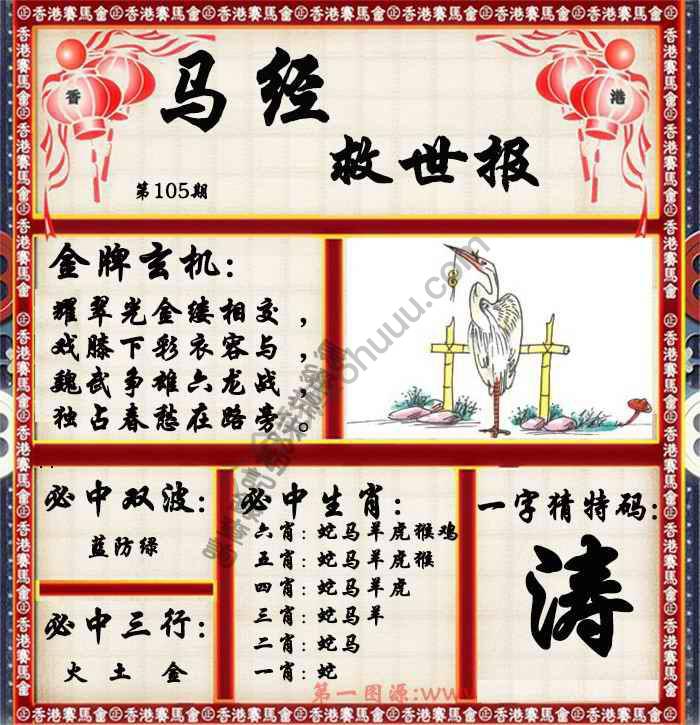 香港賽馬會
香 港
马经
救世报
第105期
金牌玄机：
耀翠光金缕相交，
戏膝下彩衣容与，
魏武争雄六龙战，
独占春愁在路旁。
必中双波：
蓝防绿
必中三行：
火 土 金
必中生肖：
六肖：蛇马羊虎猴鸡
五肖：蛇马羊虎猴
四肖：蛇马羊虎
三肖：蛇马羊
二肖：蛇马
一肖：蛇
一字猜特码：
涛
第一图源:www